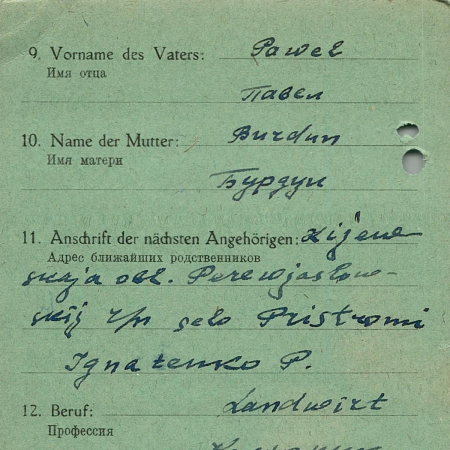 9. Vorname des Vaters: Pawel
Имя отца
Павел
10. Name der Mutter: Burdun
Имя матери
Бурдун
11. Anschrift der nächsten Angehörigen: Kijew-
Адрес ближайших родственников
skaja obl. Perewjaslow-
skij r/n selo Pristromi
Ignatenko P.
12. Beruf: Landwirt
Профессия